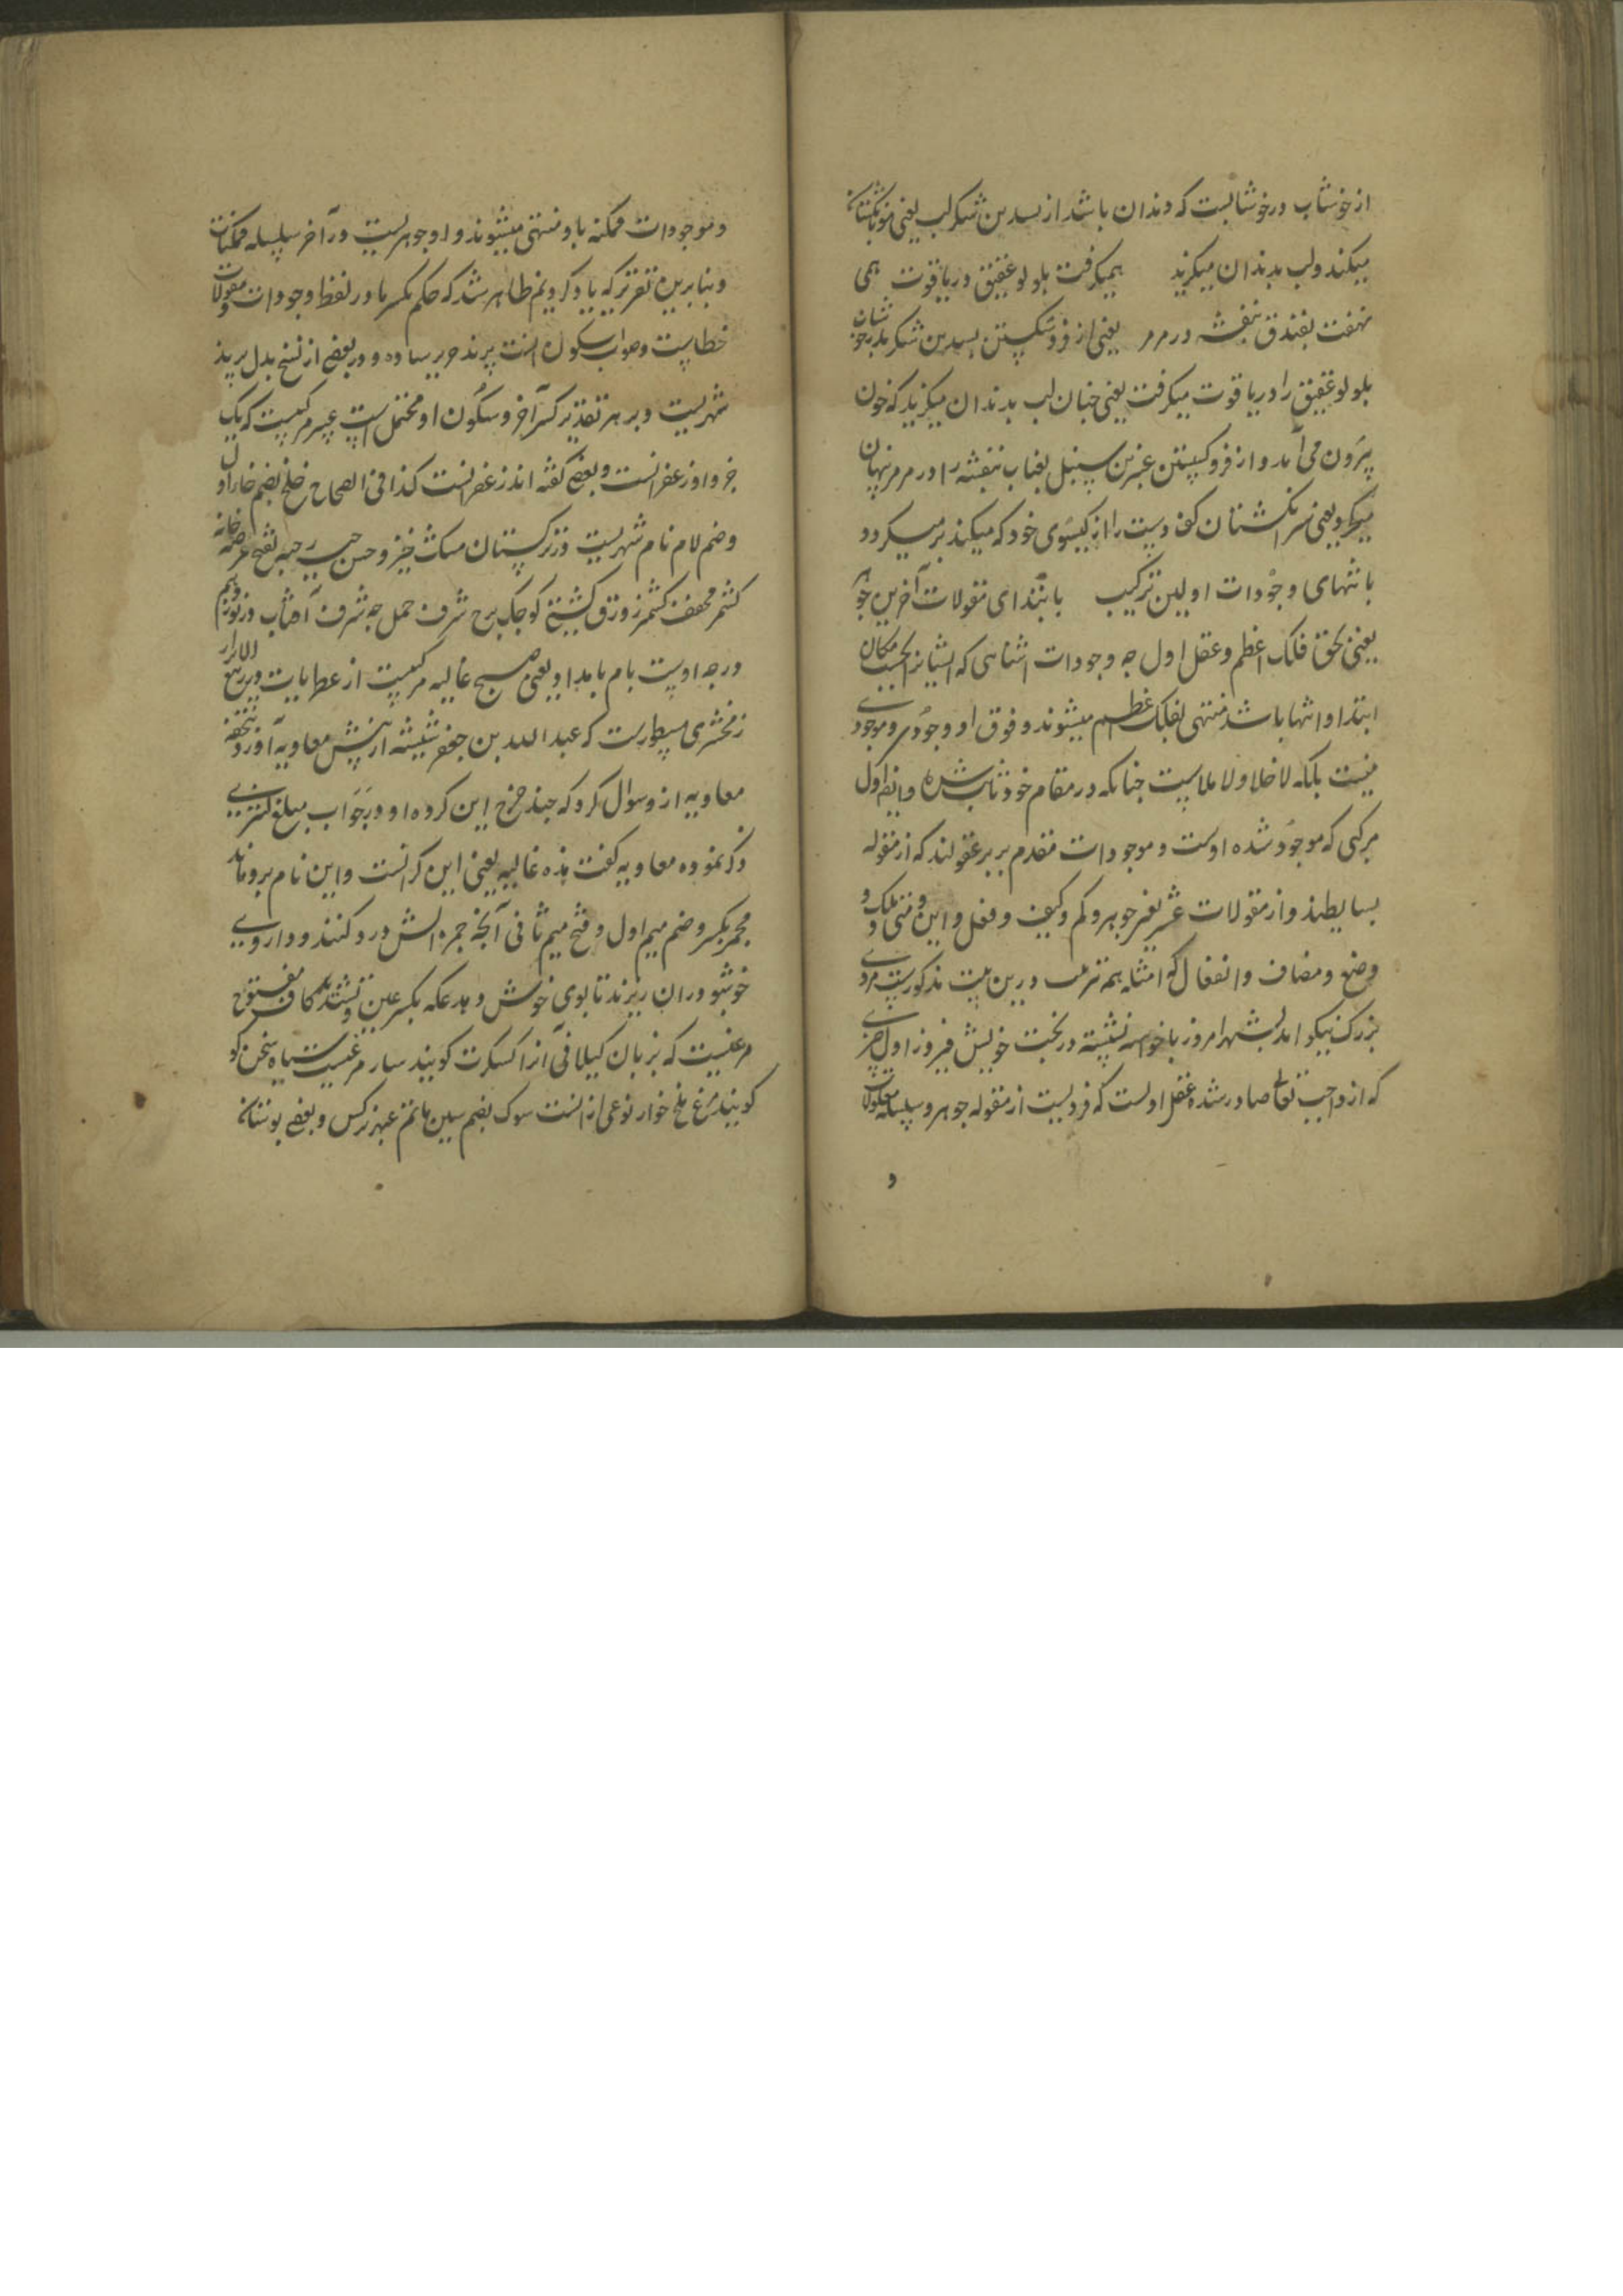 از خوشاب در خوشابست که دندان باشد از بسدین شکر لب یعنی
میکند و لب بدندان میگزید همیگرفت بلولو عقیق در یاقوت همی
نهفت بفندق بنفشه در مرمر یعنی از بسدین شکر
بلولو عقیق را در یاقوت میگرفت یعنی چنان لب بدندان میگزید که خون
بیرون می آمد و از عنبرین سنبل بعناب بنفشه را در مرمر نهان
میکرد یعنی سر انگشتان کف دست را از گیسوی خود که میکند پر میکرد
بانتهای وجودات اولین ترکیب بابتدای مقولات آخرین جوهر
یعنی بحق فلک اعظم و عقل اول چه وجودات اشیاهی که ایشانرا بحسب مکان
ابتدا و انتها باشد منتهی بفلک اعظم میشوند و فوق او وجودی و موجودی
نیست بلکه لا خلا و لا ملاست چنانکه در مقام خود ثابت شده و ایضا اول
مرکبی که موجود شده اوست و موجودات مقدم برو عقولند که از مقوله
بسایطند و از مقولات عشر یعنی جوهر و کم و کیف و فعل و این و متی و ملک و
وضع و مضاف و انفعال که امثله همه بترتیب درین بیت مذکورست مردی
بزرگ نیکو امد بشهر امروز با خواسته نشسته در بخت خویش فیروز اول چیزی
که از واجب تعالی صادر شده عقل اولست که فردیست از مقوله جوهر و سلسله معلولات
و
و موجودات ممکنه باو منتهی میشوند و او جوهریست در آخر سلسله ممکنات
و بنابرین تقریر که یاد کردیم ظاهر شد که حکم بکسر ما در لفظ وجودات و مقولات
خطاست و صواب سکون است پرند حریر ساده و در بعضی از نسخ بدل پرند
شهریست و بر هر تقدیر کسر آخر و سکون او محتملست عبیر مرکبیست که یک
جزو او زعفرانست و بعضی گفته اند زعفرانست کذا فی الصحاح خلخ بضم خاء اول
و ضم لام نام شهریست در ترکستان مشک خیز و حسن خیز بفتح عرصه خانه
کشمر مخفف کشمیر زورق کشتی کوچک برج شرف حمل چه شرف آفتاب در نوزدهم
درجه اوست بام بامداد یعنی صبح غالیه مرکبیست از عطریات در ربیع الابرار
زمخشری مسطورست که عبدالله بن جعفر شیشه از پیش معاویه آورد بتحفه
معاویه ازو سوال کرد که چند خرج این کرده او در جواب مبلغ کثیری
ذکر نموده معاویه گفت هذه غالیه یعنی این گرانست و این نام برو ماند
مجمر بکسر و ضم میم اول و فتح میم ثانی آنچه جمره آتش درو کنند و داروی
خوشبو دران ریزند تا بوی خوش دهد عکه بکسر عین و تشدید کاف مفتوح
مرغیست که بزبان گیلانی آنرا کسکرت گویند سار مرغیست سیاه سخن گو
گویند مرغ ملخ خوار نوعی ازانست سوک بضم سین ماتم عبهر نرگس و بعضی